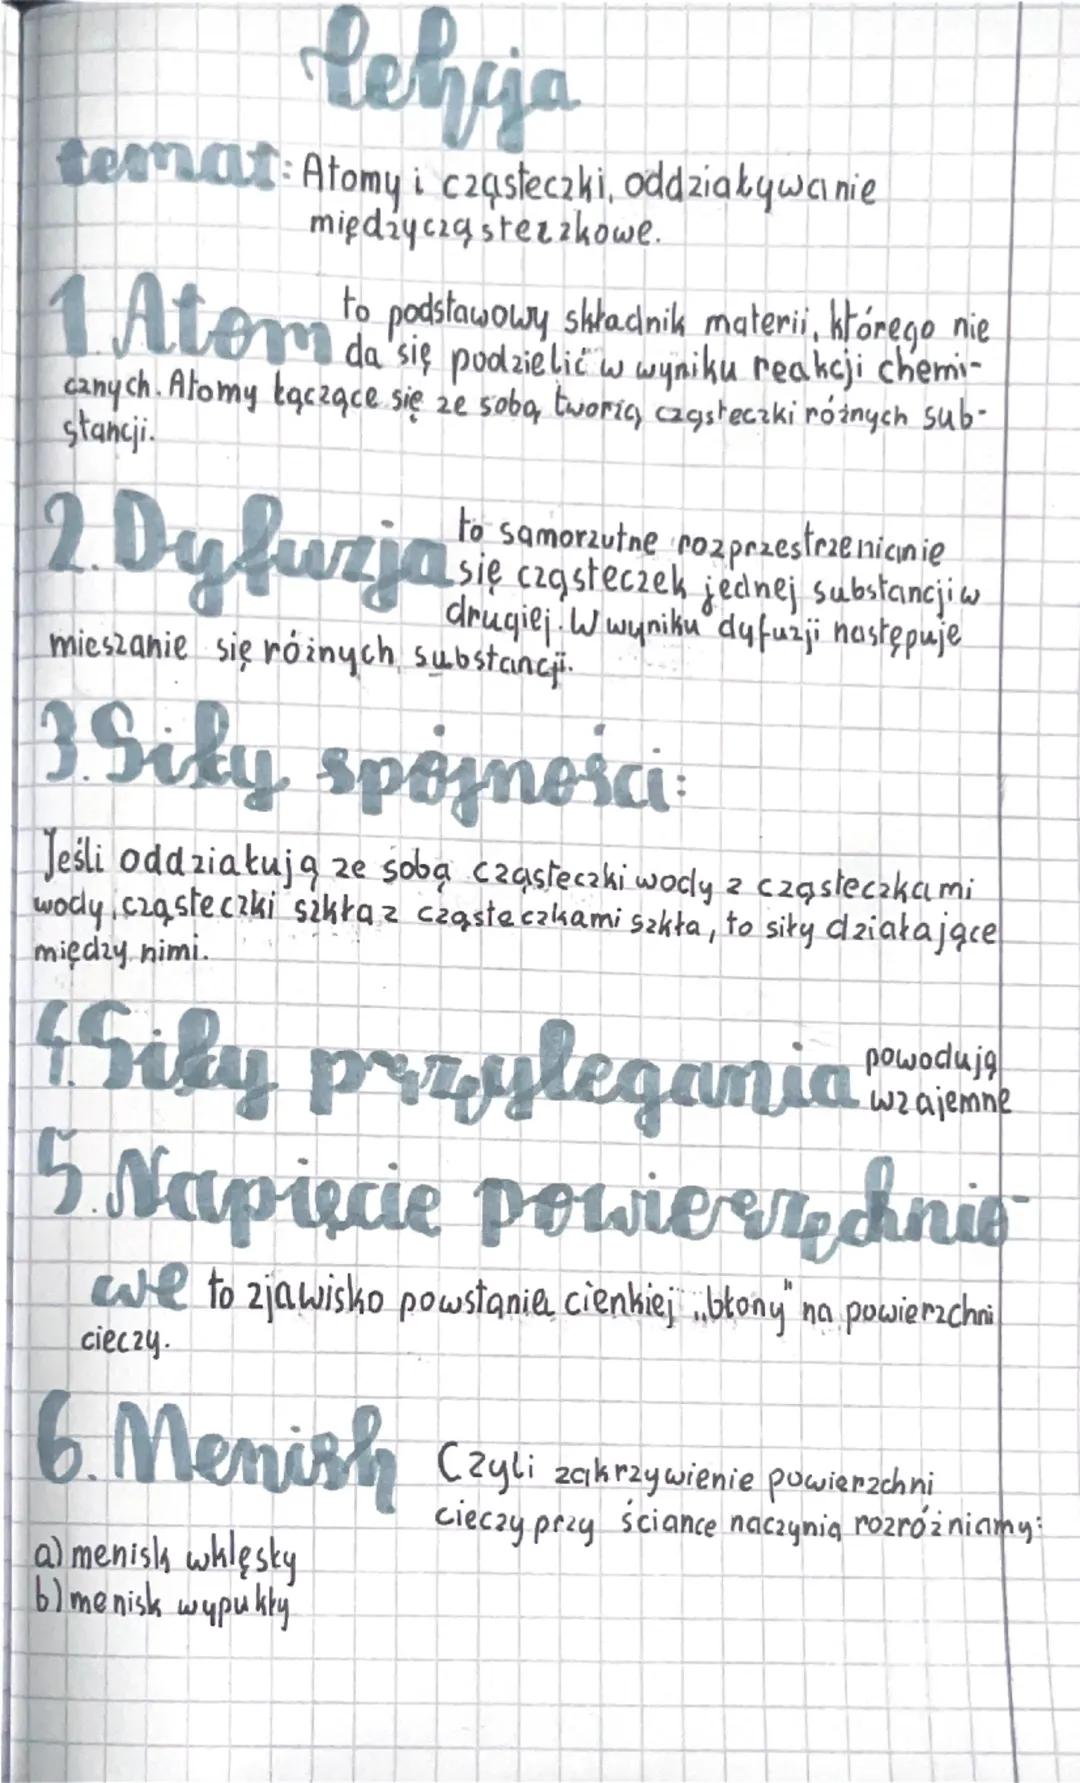 Lekcja
temat: Atomy i cząsteczki, oddziaływanie
międzycząsteczkowe.
1. Atom to podstawowy składnik materii, którego nie
da się podzielić w wyniku reakcji chemi-
cznych. Atomy łączące się ze sobą tworią cząsteczki różnych sub-
stancji.
2. Dyfuzja to samorzutne rozprzestrzenianie
się cząsteczek jednej substancji w
drugiej. W wyniku dyfuzji następuje
mieszanie się różnych substancji.
3. Siły spójności:
Jeśli oddziałują ze sobą cząsteczki wody z cząsteczkami
wody, cząsteczki szkła z cząsteczkami szkła, to siły działające
między nimi.
4. Siły przylegania powodują
wzajemne
5. Napięcie powierzchnio-
we to zjawisko powstania cienkiej „błony" na powierzchni
cieczy.
6. Menisk Czyli zakrzywienie powierzchni
cieczy przy ściance naczynia rozróżniamy:
a) menisk wklęsły
b) menisk wypukły